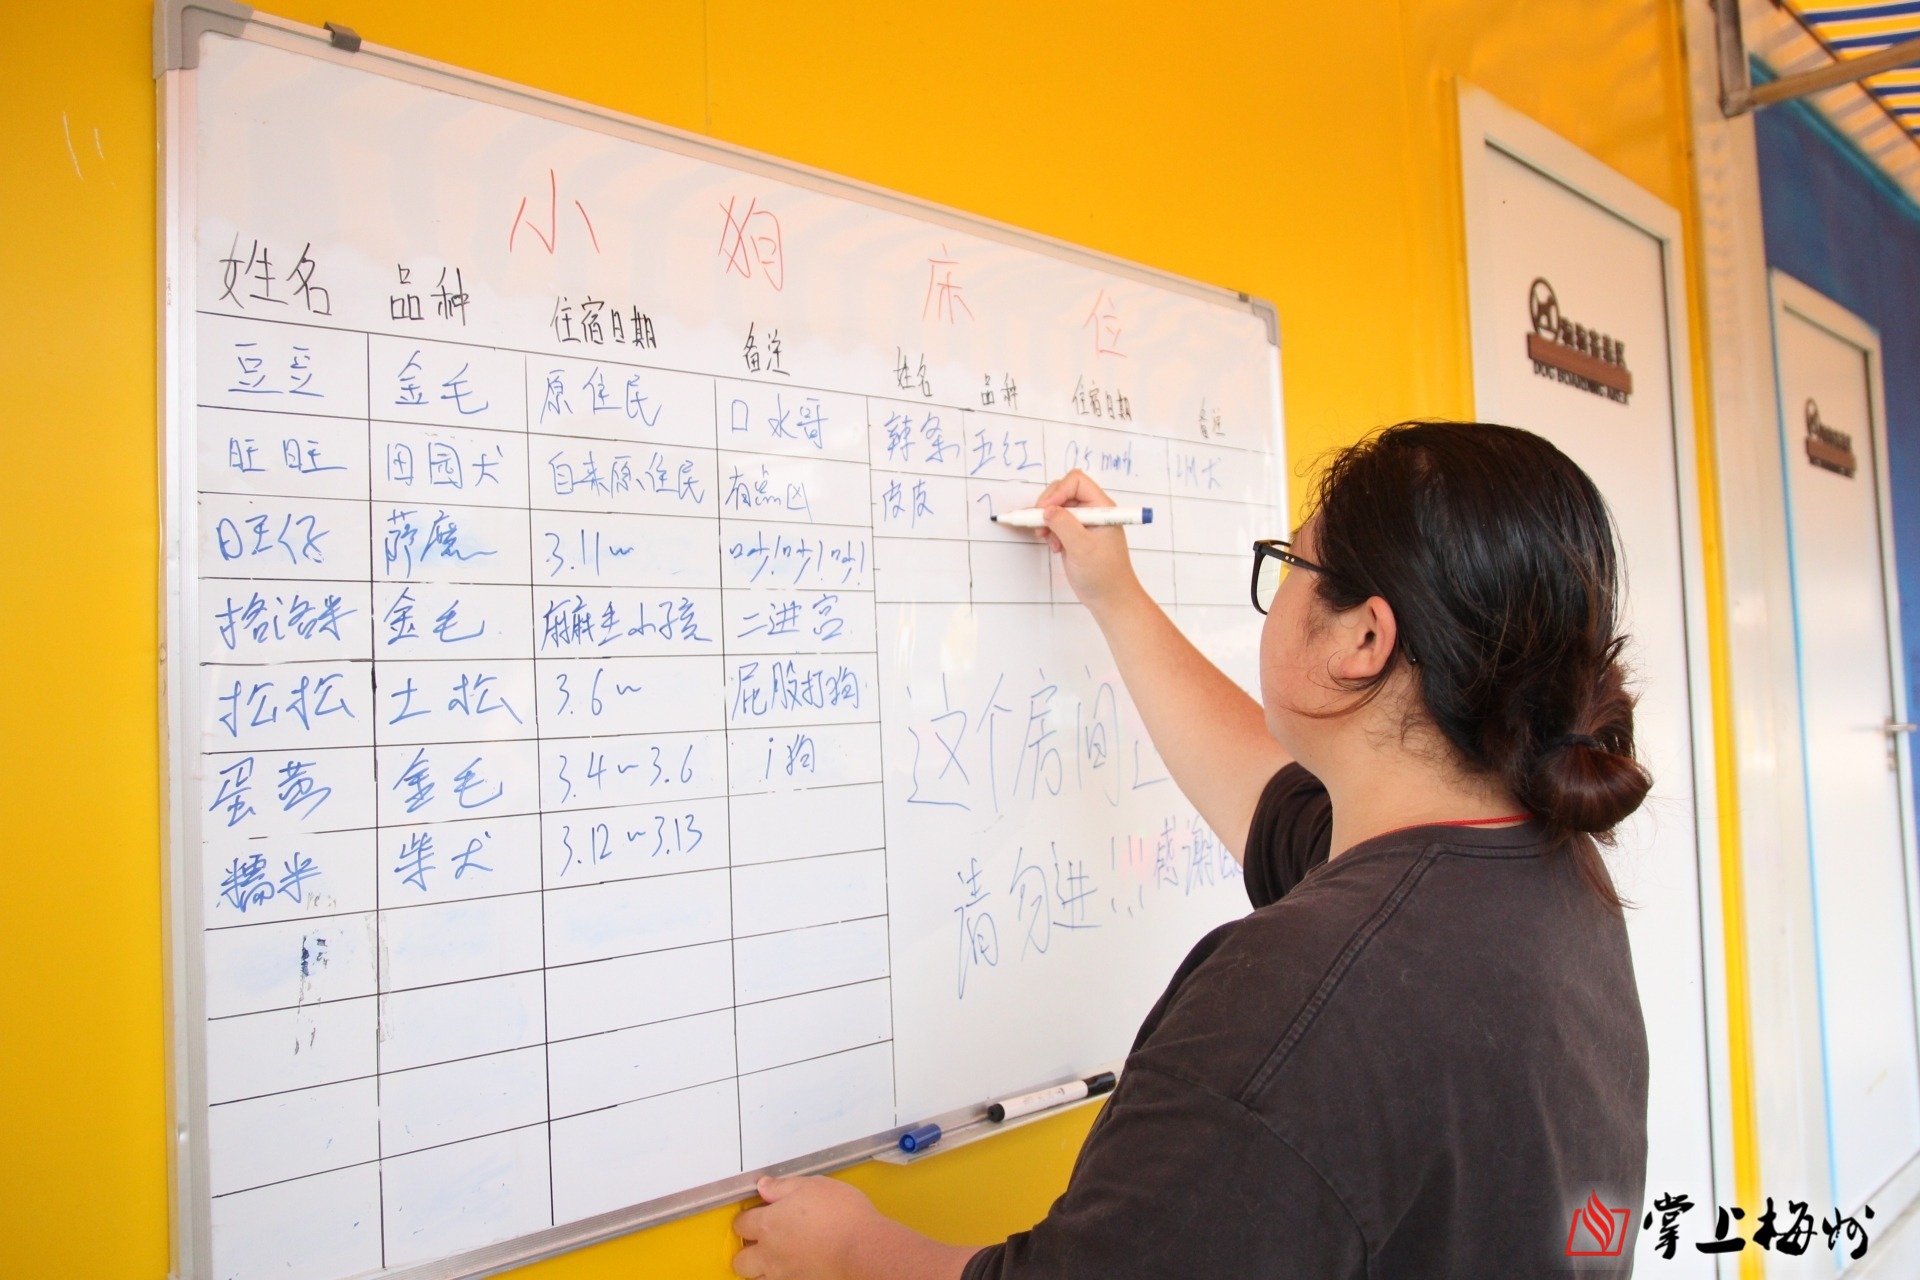 小狗床位
姓名 品种 住宿日期 备注
豆豆 金毛 原住民 口水哥
旺旺 田园犬 自来原住民 有点凶
旺仔 萨摩 3.11~ 吵!吵!吵!
格洛米 金毛 麻生小孩 二进宫
松松 土松 3.6~ 屁股打狗
蛋黄 金毛 3.4~3.6 i狗
糯米 柴犬 3.12~3.13
姓名 品种 住宿日期 备注
辣条 五红
皮皮
这个房间
请勿进!!! 感谢
DOG BOARDING AREA
掌上梅州